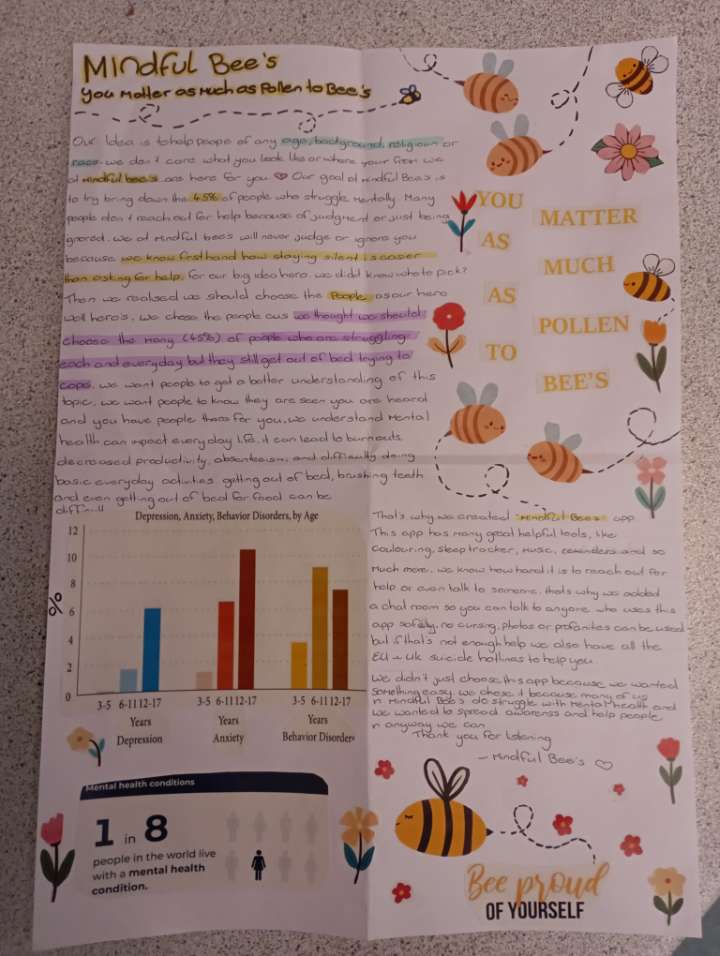 MINdful Bee's
You Matter as Much as Pollen to Bee's
Our Idea is to help people of any age, background, religion or
race. we don't care what you look like or where your from we
at mindful bee's are here for you Our goal at mindful Bee's is
to try bring down the 45% of people who struggle mentally. Many
people don't reach out for help because of judgment or just being
ignored. we at Mindful bee's will never judge or ignore you
because we know firsthand how staying silent is easier
than asking for help. for our big idea hero. we didnt know who to pick?
Then we realised we should choose the People as our hero
well hero's. we chose the people cus we thought we should
choose the many (45%) of people who are struggling
each and everyday but they still get out of bed trying to
cope. we want people to get a better understanding of this
topic. we want people to know they are seen you are heard
and you have people there for you. we understand mental
health can impact everyday life. it can lead to burnouts,
decreased productivity, absenteeism, and difficulty doing
basic everyday activities. getting out of bed, brushing teeth
and even getting out of bed for food can be
difficult
Depression, Anxiety, Behavior Disorders, by Age
%
12
10
8
6
4
2
0
3-5 6-11 12-17 3-5 6-11 12-17 3-5 6-11 12-17
Years Years Years
Depression Anxiety Behavior Disorders
Mental health conditions
1 in 8
people in the world live
with a mental health
condition.
YOU
MATTER
AS
MUCH
AS
POLLEN
TO
BEE'S
That's why we created "Mindful Bee's" app
This app has many great helpful tools, like
colouring, sleep tracker, music, reminders and so
much more. we know how hard it is to reach out for
help or even talk to someone. thats why we added
a chat room so you can talk to anyone who uses this
app safely. no cursing, photos or profanites can be used
but if that's not enough help we also have all the
EU + UK suicide hotlines to help you.
We didn't just choose this app because we wanted
something easy. we chose it because many of us
in Mindful Bee's do struggle with mental health and
we wanted to spread awarenss and help people
in anyway we can
Thank you for listening
- Mindful Bee's
Bee proud
OF YOURSELF